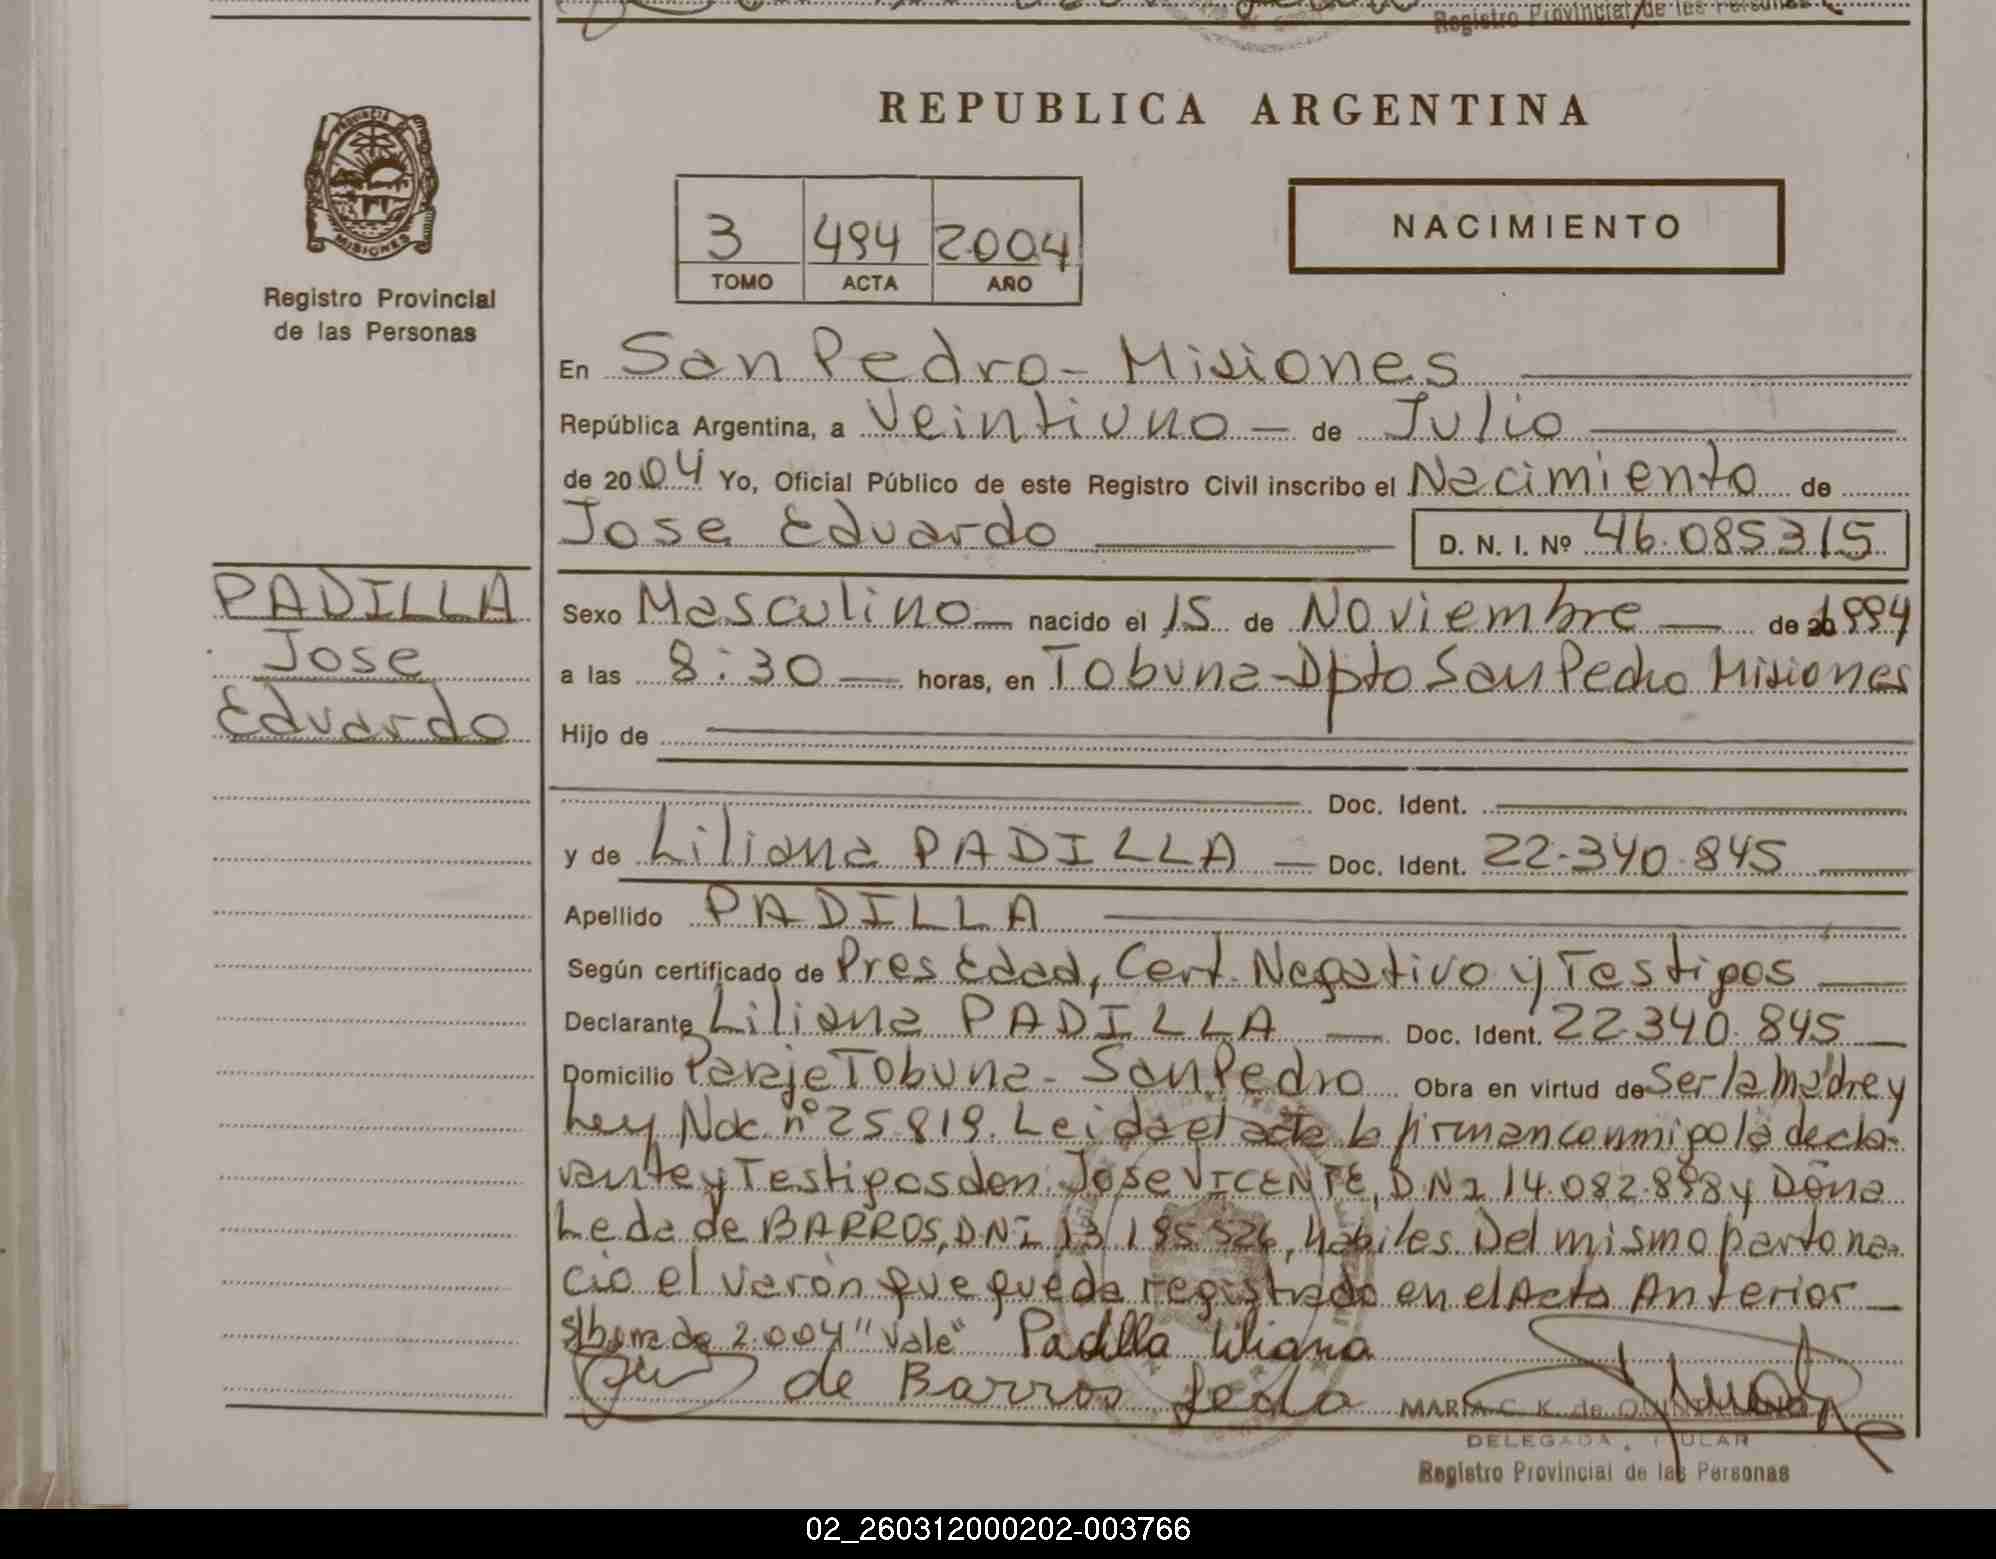 Registro Provincial de las Personas
REPUBLICA ARGENTINA
PROVINCIA DE
MISIONES
Registro Provincial
de las Personas
3 494 2004
TOMO ACTA AÑO
NACIMIENTO
En San Pedro - Misiones
República Argentina, a Veintiuno — de Julio
de 2004 Yo, Oficial Público de este Registro Civil inscribo el Nacimiento de
Jose Eduardo D. N. I. Nº 46.085315
PADILLA
Jose
Eduardo
Sexo Masculino — nacido el 15 de Noviembre — de 1994
a las 8:30 — horas, en Tobuna - Dpto San Pedro Misiones
Hijo de
Doc. Ident.
y de Liliana PADILLA — Doc. Ident. 22.340.845
Apellido PADILLA
Según certificado de Pres Edad, Cert. Negativo y Testigos
Declarante Liliana PADILLA — Doc. Ident. 22.340.845
Domicilio Paraje Tobuna - San Pedro Obra en virtud de Ser la madre y
Ley Nac nº 25.819. Leida el acta la firman conmigo la decla-
rante y Testigos don: Jose VICENTE, DNI 14.082.898 y Doña
Leda de BARROS, DNI 13.195.526, habiles. Del mismo parto na-
cio el varón que queda registrado en el Acta Anterior —
s/b 2.004 "Vale" Padilla Liliana
de Barros Leda
MARIA C. K. de
DELEGADA TITULAR
Registro Provincial de las Personas
02_260312000202-003766